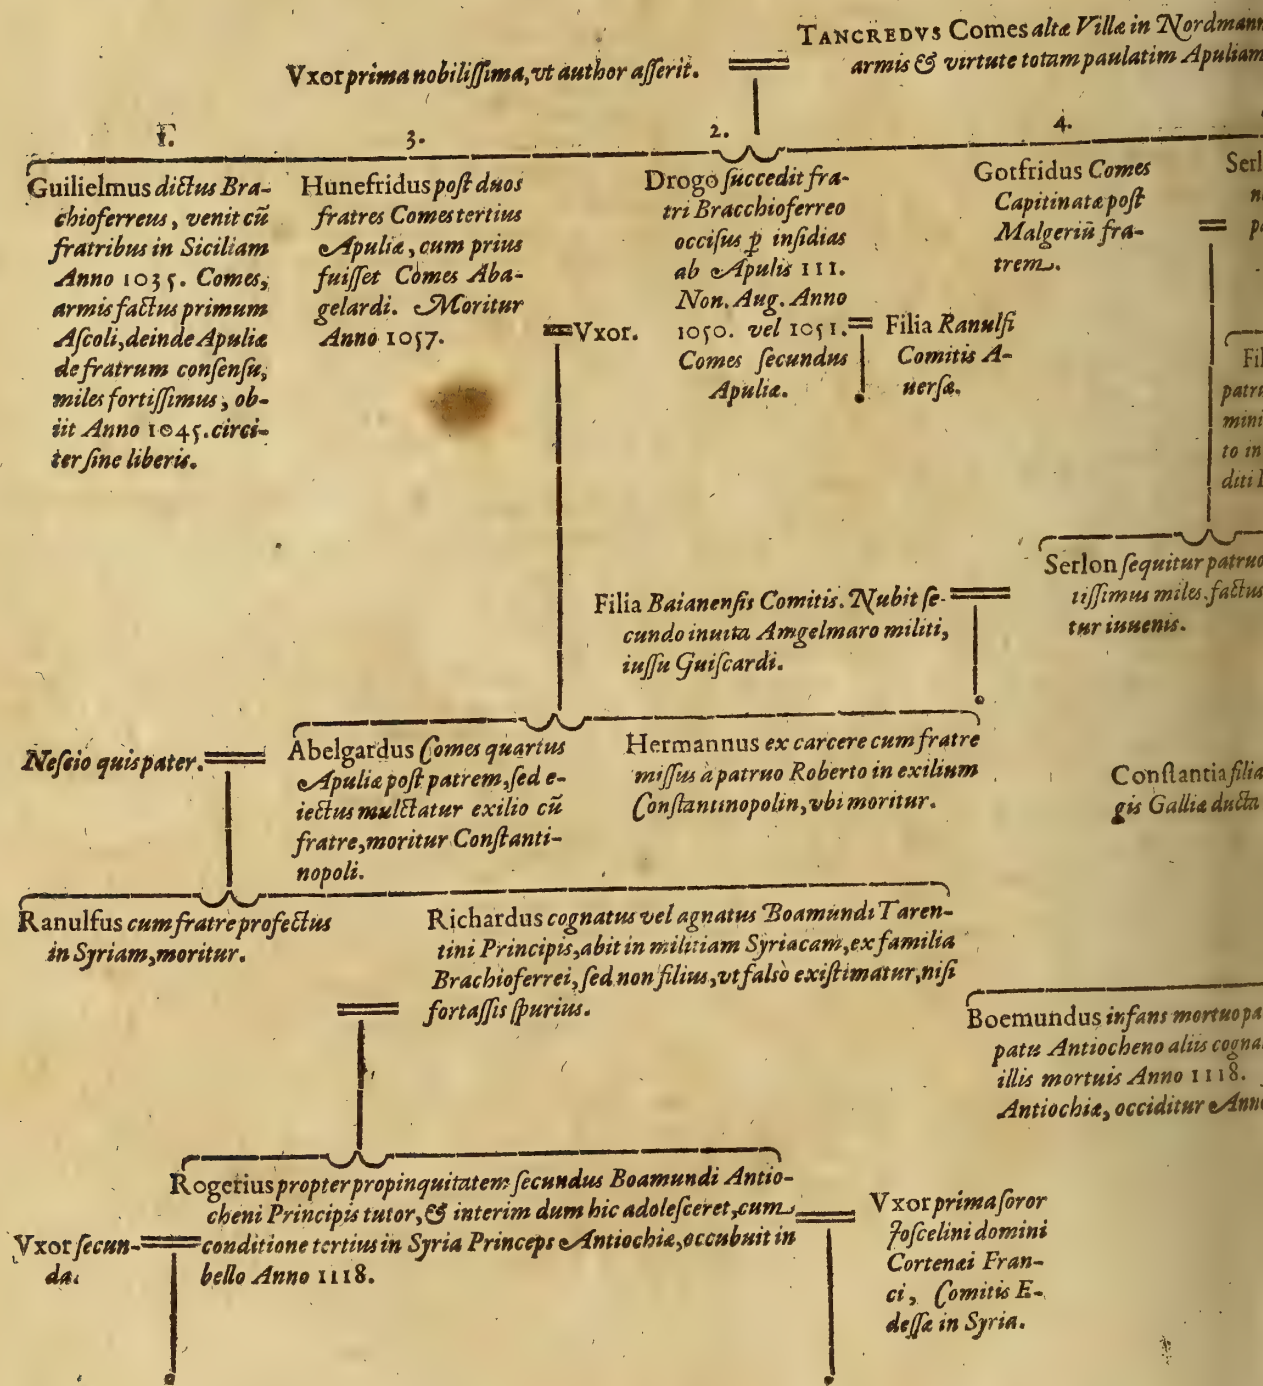 TANCREDVS Comes altæ Villæ in Nordmann
armis & virtute totam paulatim Apuliam
Vxor prima nobiliſſima, vt author aſſerit.
1.
3.
2.
4.
Guilielmus dictus Bra-
chioferreus, venit cū
fratribus in Siciliam
Anno 1035. Comes,
armis factus primum
Aſcoli, deinde Apuliæ
de fratrum conſenſu,
miles fortiſſimus, ob-
iit Anno 1045. circi-
ter ſine liberis.
Hunefridus poſt duos
fratres Comes tertius
Apuliæ, cum prius
fuiſſet Comes Aba-
gelardi. Moritur
Anno 1057.
Vxor.
Drogo ſuccedit fra-
tri Bracchioferreo
occiſus p̱ inſidias
ab Apulis III.
Non. Aug. Anno
1050. vel 1051.
Comes ſecundus
Apuliæ.
Filia Ranulfi
Comitis A-
uerſæ.
Gotfridus Comes
Capitinatæ poſt
Malgeriū fra-
trem.
Serl
Fil
patru
mini
to in
diti
Filia Baianenſis Comitis. Nubit ſe-
cundo inuita Amgelmaro militi,
iuſſu Guiſcardi.
Serlon ſequitur patruo
tiſſimus miles factus
tur iuuenis.
Neſcio quis pater.
Abelgardus Comes quartus
Apuliæ poſt patrem, ſed e-
iectus mulctatur exilio cū
fratre, moritur Conſtanti-
nopoli.
Hermannus ex carcere cum fratre
miſſus à patruo Roberto in exilium
Conſtantinopolin, vbi moritur.
Conſtantia filia
gis Galliæ ducta
Ranulfus cum fratre profectus
in Syriam, moritur.
Richardus cognatus vel agnatus Boamundi Taren-
tini Principis, abit in militiam Syriacam, ex familia
Brachioferrei, ſed non filius, vt falsò exiſtimatur, niſi
fortaſſis ſpurius.
Boemundus infans mortuo pa
patu Antiocheno aliis cogna
illis mortuis Anno 1118.
Antiochiæ, occiditur Anno
Rogerius propter propinquitatem ſecundus Boamundi Antio-
cheni Principis tutor, & interim dum hic adoleſceret, cum
conditione tertius in Syria Princeps Antiochiæ, occubuit in
bello Anno 1118.
Vxor ſecun-
da.
Vxor prima ſoror
Joſcelini domini
Cortenæi Fran-
ci, Comitis E-
deſſæ in Syria.